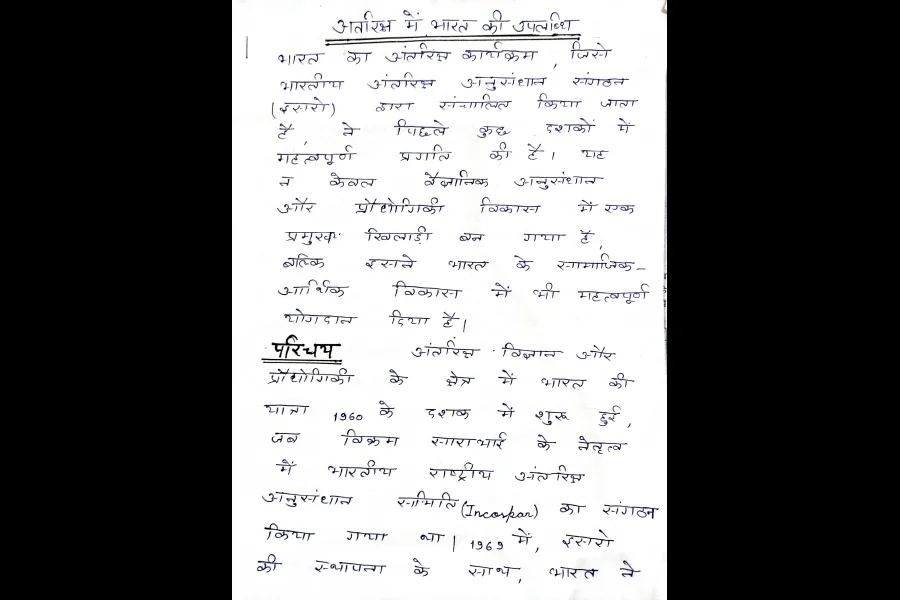 अंतरिक्ष में भारत की उपलब्धि
भारत का अंतरिक्ष कार्यक्रम, जिसे
भारतीय अंतरिक्ष अनुसंधान संगठन
(इसरो) द्वारा संचालित किया जाता
है, ने पिछले कुछ दशकों में
महत्वपूर्ण प्रगति की है। यह
न केवल वैज्ञानिक अनुसंधान
और प्रौद्योगिकी विकास में एक
प्रमुख खिलाड़ी बन गया है,
बल्कि इसने भारत के सामाजिक-
आर्थिक विकास में भी महत्वपूर्ण
योगदान दिया है।
परिचय अंतरिक्ष विज्ञान और
प्रौद्योगिकी के क्षेत्र में भारत की
यात्रा 1960 के दशक में शुरू हुई,
जब विक्रम साराभाई के नेतृत्व
में भारतीय राष्ट्रीय अंतरिक्ष
अनुसंधान समिति (Incospar) का संगठन
किया गया था। 1969 में, इसरो
की स्थापना के साथ, भारत ने